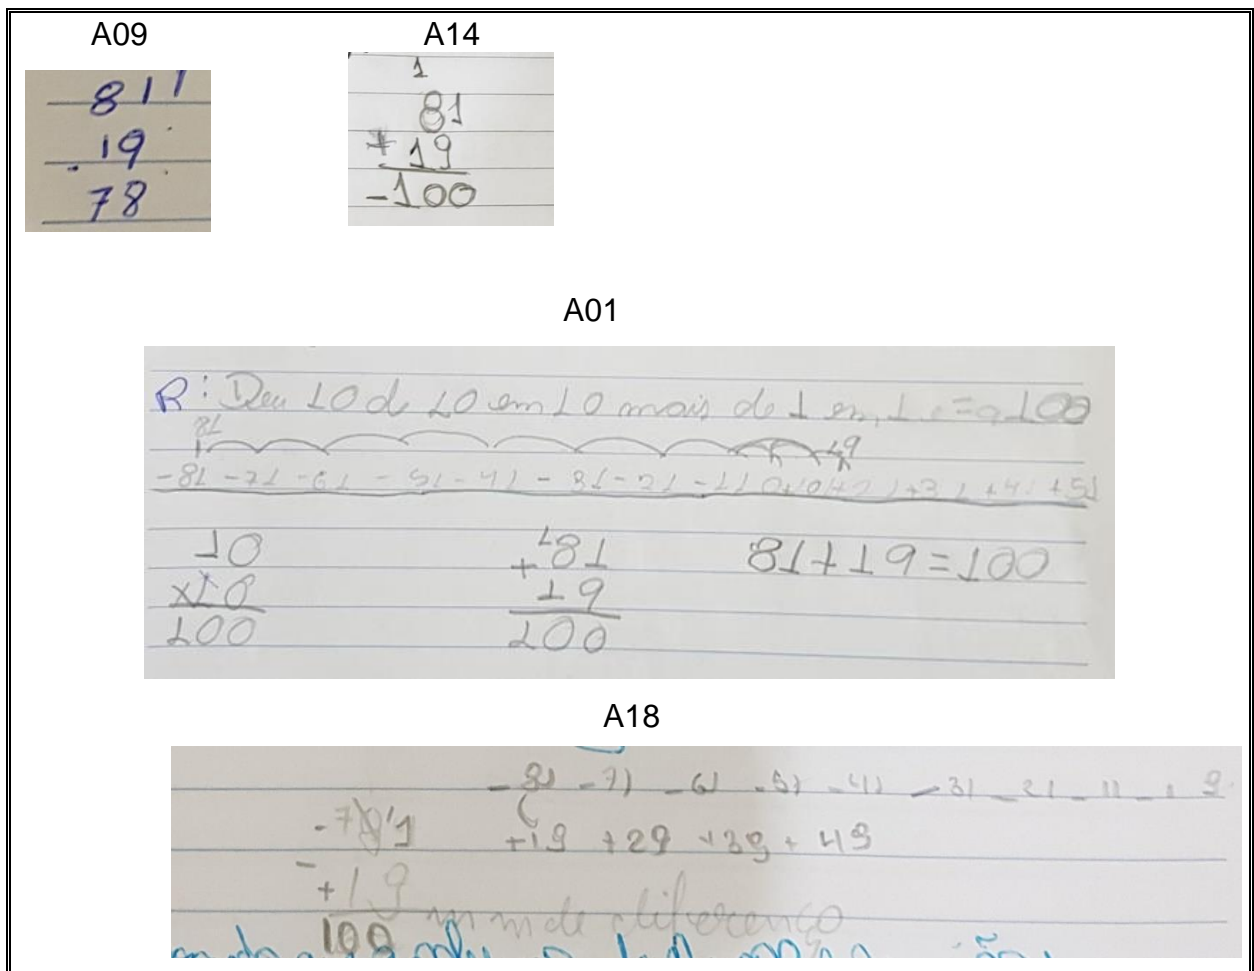 A09
811
- 19
78
A14
1
81
+ 19
-100
A01
R: Deu 10 de 10 em 10 mais de 1 em 1 = 100
81
19
-81 -71 -61 -51 -41 -31 -21 -11
+31 +41 +51
10
x10
100
1
81
+ 19
100
81+19=100
A18
-81 -71 -61 -51 -41 -31 -21 -11 -1 9
+19 +29 +39 + 49
+19
100
de diferença